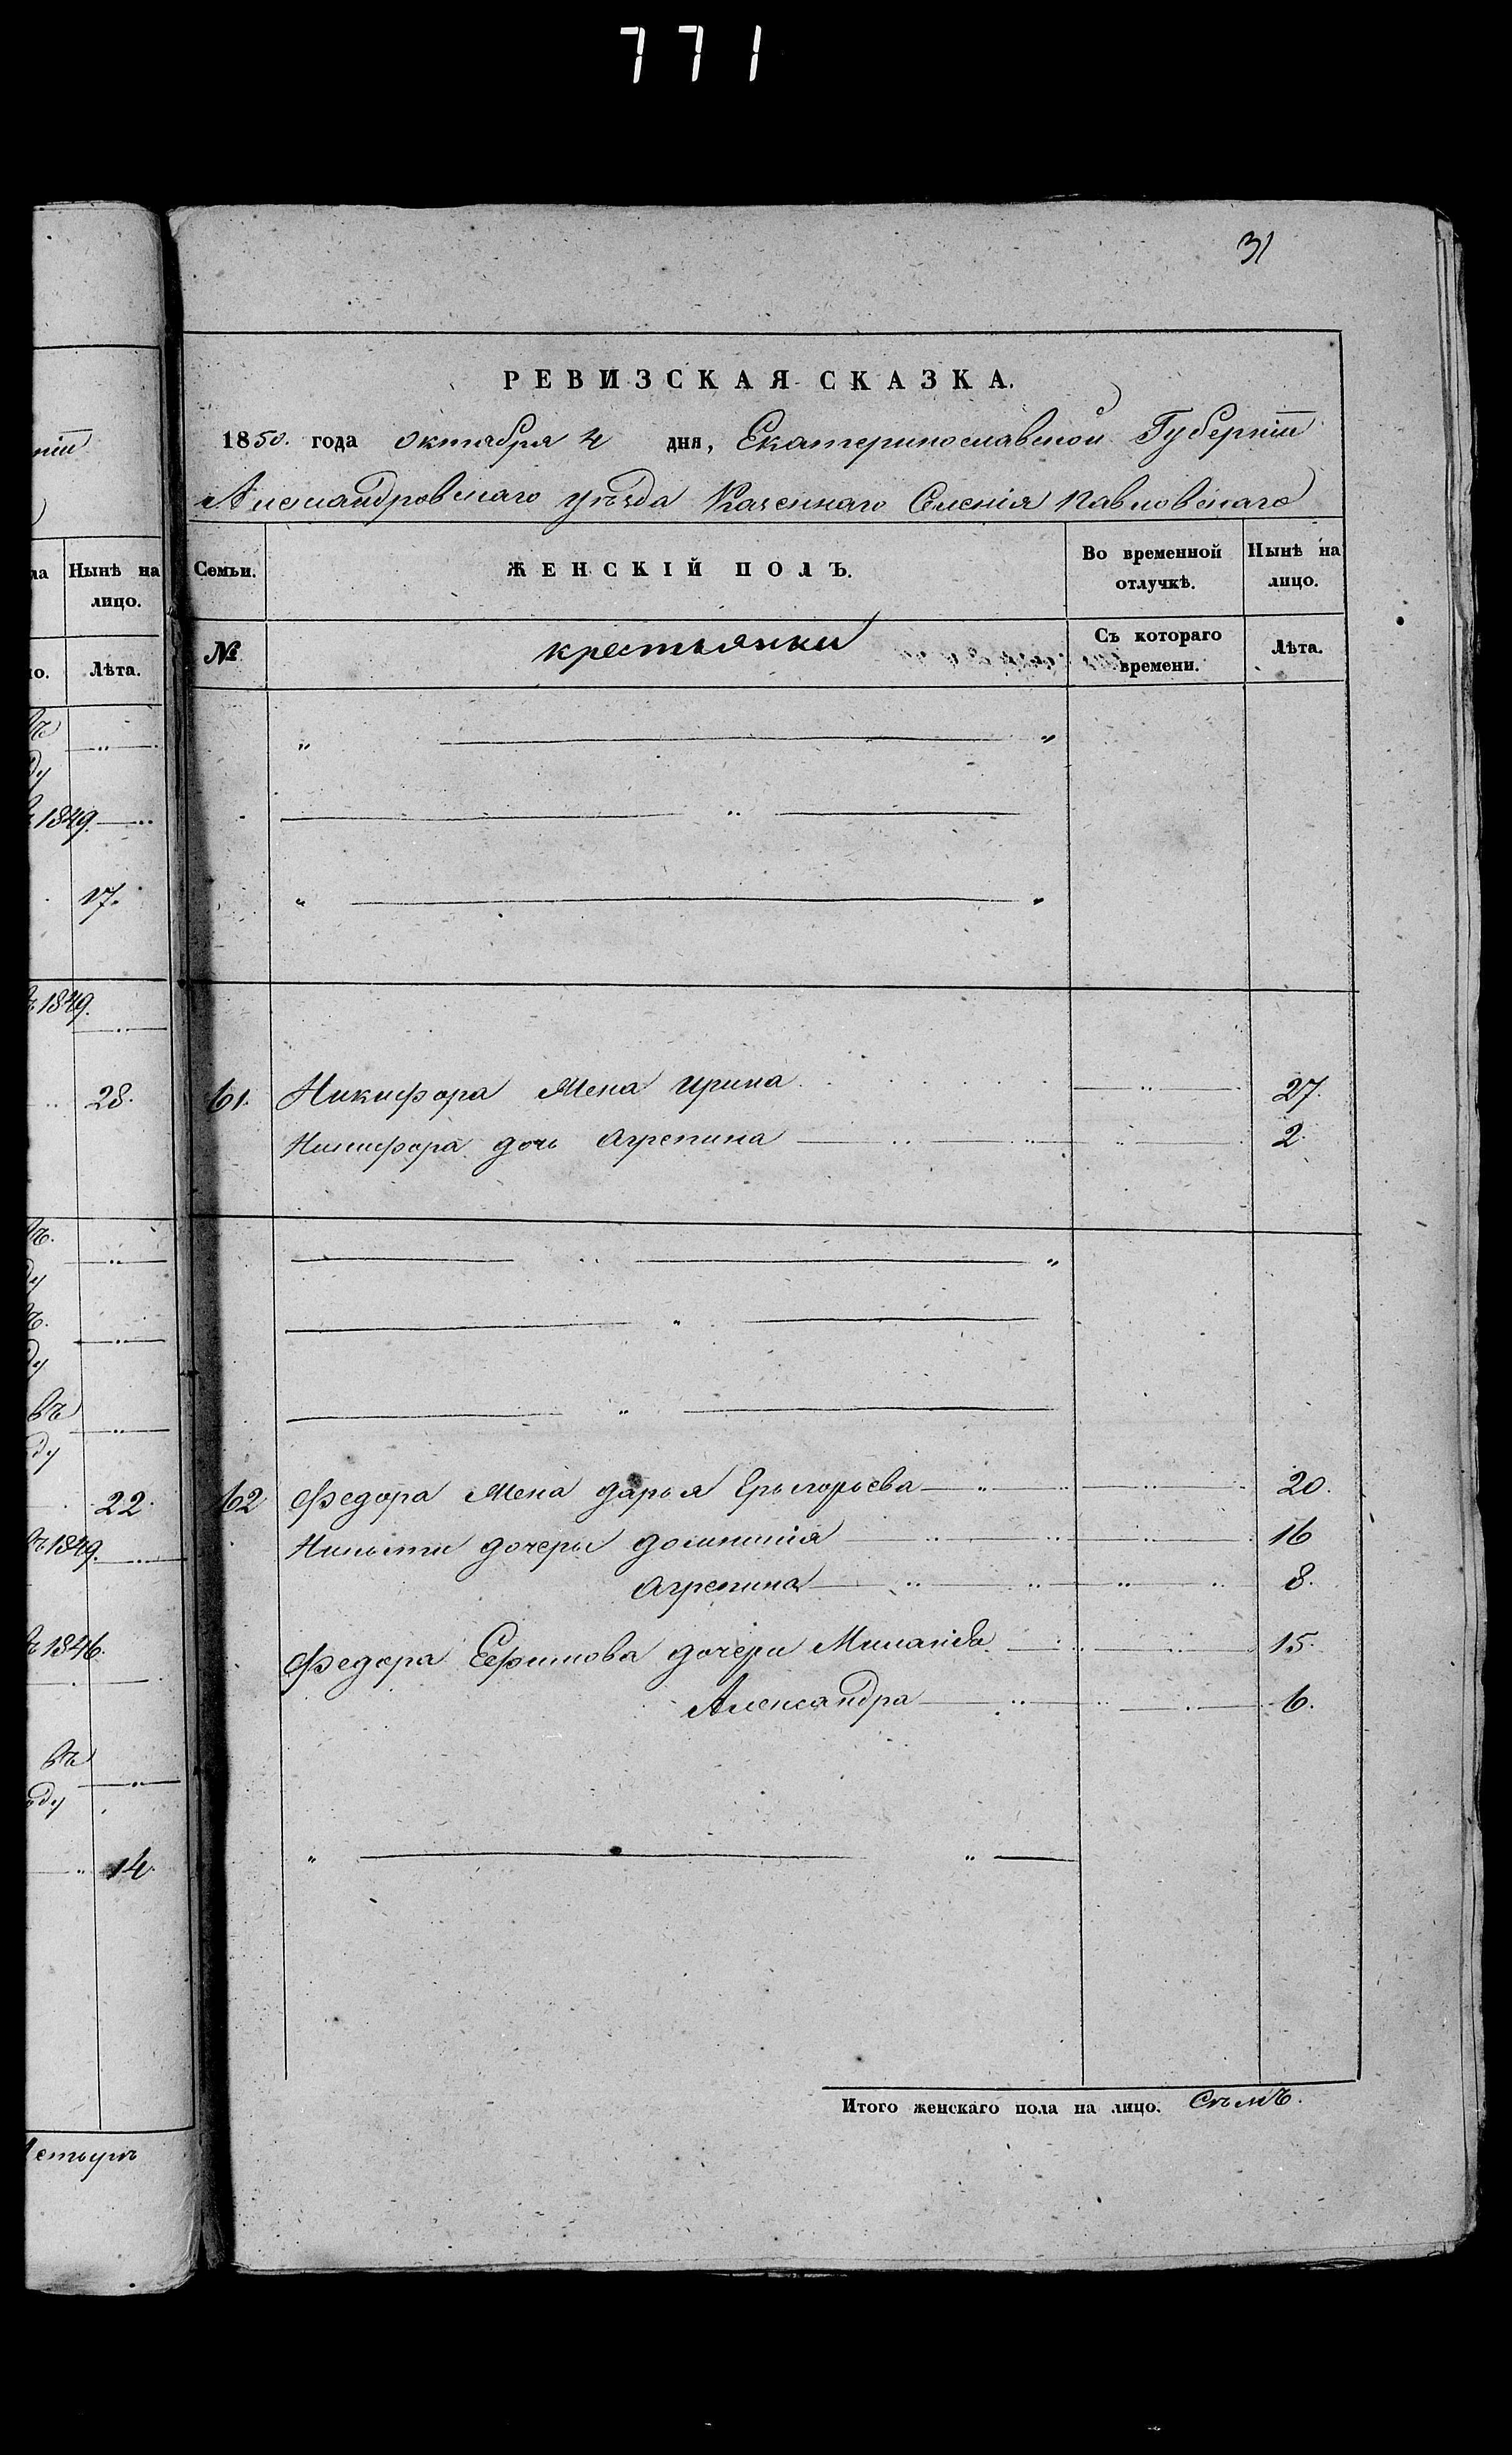 771
31
РЕВИЗСКАЯ СКАЗКА.
1850. года октября 4 дня, Екатеринославской Губерніи
Александровскаго уѣзда Казеннаго Селенія Павловскаго
Семьи. ЖЕНСКІЙ ПОЛЪ. Во временной отлучкѣ. Нынѣ на лицо.
№ крестьянки Съ котораго времени. Лѣта.
61. Никифора Жена Ирина 27.
Никифора дочь Агрепина 2.
62 Федора Жена Дарья Григорьева 20.
Никиты дочери Домникия 16
Агрепина 8.
Федора Ефимова дочери Миланья 15.
Александра 6.
Итого женскаго пола на лицо. Сѣмъ.
нiи
ла Нынѣ на лицо.
ло. Лѣта.
въ
ду
1849.
17.
1849.
28.
въ
ду
въ
ду
въ
ду
22.
въ 1849.
1846.
въ
оду
14.